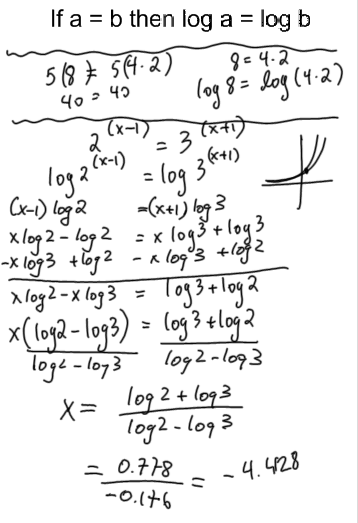 If a = b then log a = log b
5(8) = 5(4·2) 8 = 4·2
40 = 40 log 8 = log (4·2)
2^(x-1) = 3^(x+1)
log 2^(x-1) = log 3^(x+1)
(x-1) log 2 = (x+1) log 3
x log 2 - log 2 = x log 3 + log 3
-x log 3 + log 2 - x log 3 + log 2
x log 2 - x log 3 = log 3 + log 2
x(log 2 - log 3) = log 3 + log 2
log 2 - log 3 log 2 - log 3
x = log 2 + log 3
log 2 - log 3
= 0.778 = -4.428
-0.176